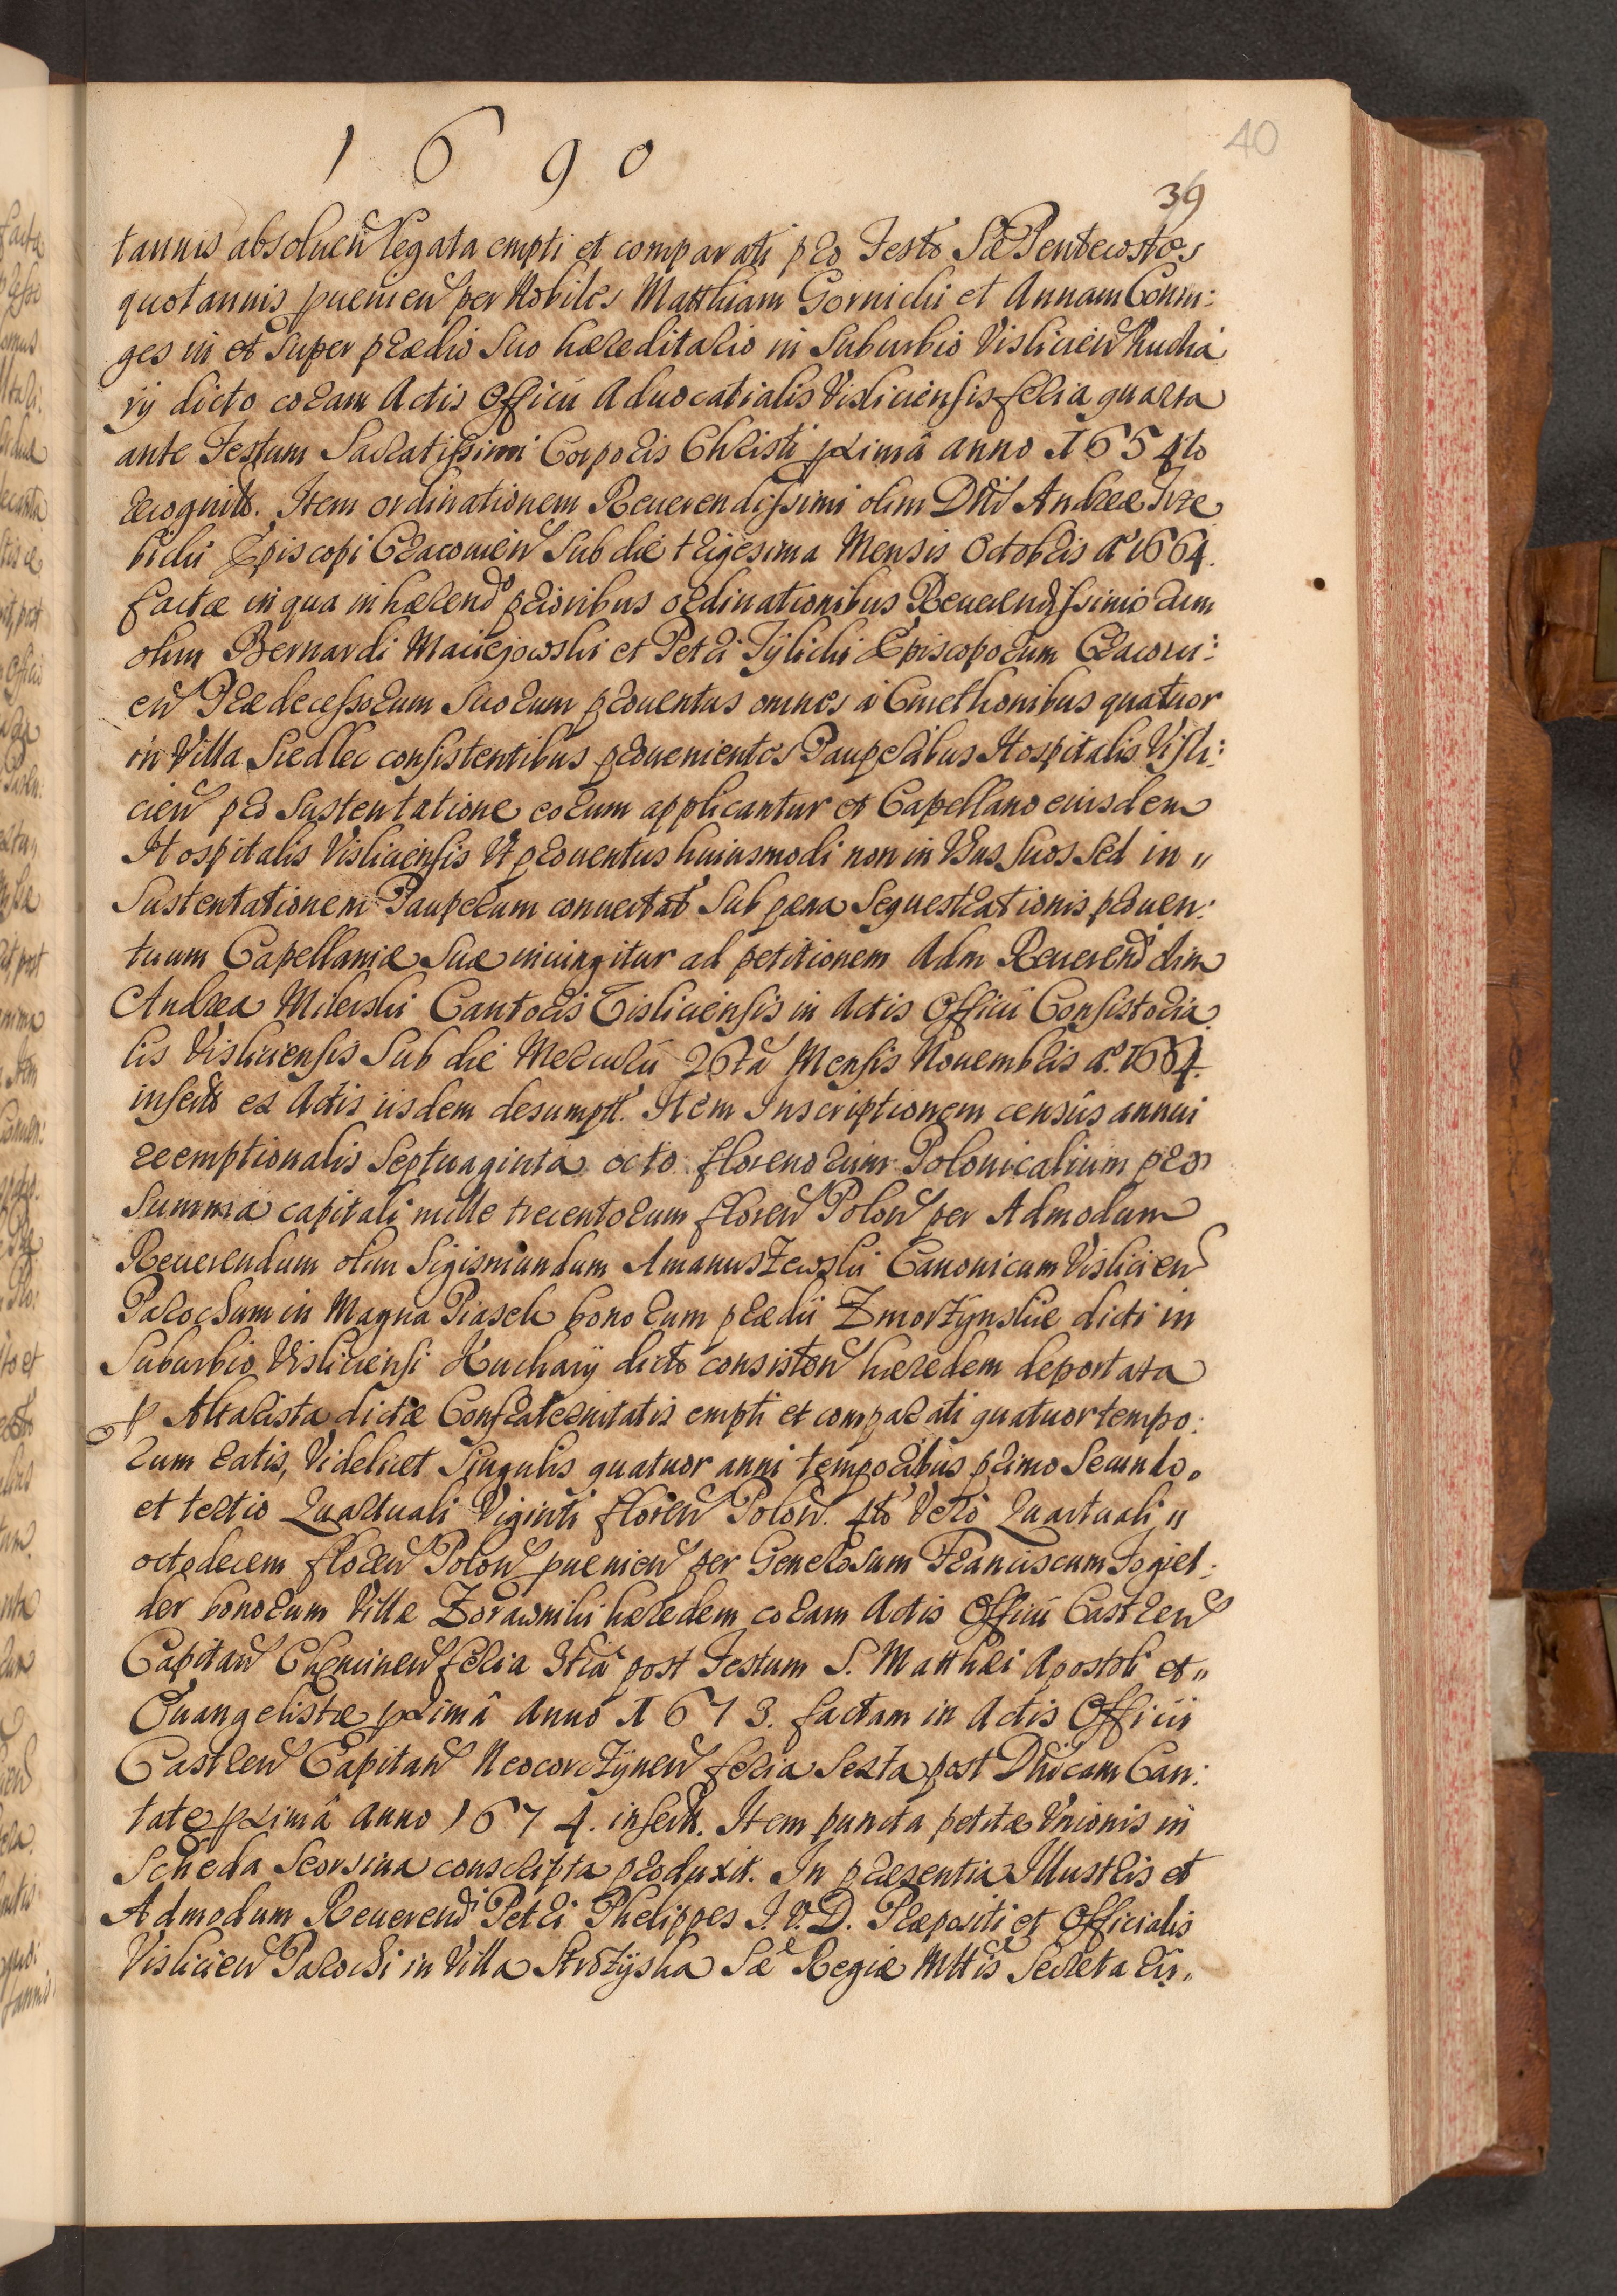 40
1690
39
tannis absoluen legata empti et comparati pro Festo Sæ Pentecostes
quotannis puenien per Nobiles Matthiam Gornicki et Annam Coniu:
ges in et super prædio suo hæreditario in Suburbio Vislicien Kucha
rÿ dicto coram Actis Officii Aduocatialis Visliciensis feria quarta
ante Festum Sacratissimi Corporis Christi pximâ anno 1654to
recognit. Item ordinationem Reuerendissimi olim Dni Andreæ Trze
bicki Episcopi Cracouien sub die trigesima Mensis Octobris Ao 1664.
factæ in qua inhærendo prioribus ordinationibus Reuerendissimorum
olim Bernardi Maciejowski et Petri Tÿlicki Episcoporum Cracoui:
en Prædecessorum suorum prouentus omnes à Cmethonibus quatuor
in Villa Siedlec consistentibus prouenientes Pauperibus Hospitalis Visli:
cien pro sustentatione eorum applicantur et Capellano eiusdem
Hospitalis Visliciensis Vt prouentus huiusmodi non in Vsus suos sed in
sustentationem Pauperum conuertat sub pæna sequestrationis prouen:
tuum Capellaniæ suæ iniungitur ad petitionem Adm Reuerendorum
Andrea Milerski Cantoris Visliciensis in Actis Officii Consistoria
lis Visliciensis sub die Mercurii 26ta Mensis Nouembris Ao. 1664.
insert ex Actis iisdem desumpt. Item Inscriptionem censûs annui
reemptionalis septuaginta octo florenorum Polonicalium pro
summa capitali mille trecentorum floren Polon per Admodum
Reuerendum olim Sigismundum Amanuszewski Canonicum Vislicien
Parochum in Magna Piasek bonorum prædii Zmorzÿnskie dicti in
Suburbio Visliciensi Kucharÿ dicto consisten hæredem deportata
p Altarista dictæ Confraternitatis empti et comparati quatuor tempo:
rum ratis, Videlicet singulis quatuor anni temporibus primo secundo
et tertio Quartuali Viginti floren Polon. 4to Vero Quartuali
octodecem floren Polon puenien per Generosum Franciscum Jogiel:
der bonorum Villæ Zorawniki hæredem coram Actis Officii Castren
Capitan Chencinen feria 3tia post Festum S. Matthæi Apostoli et
Euangelistæ pximâ Anno 1673. factam in Actis Officii
Castren Capitan Neocorczÿnen feria sexta post Dnicam Can:
tate pximâ anno 1674. insert. Item puncta petitæ Vnionis in
scheda seorsiua conscripta produxit. In præsentia Illustris et
Admodum Reuerendi Petri Phelippes I. V. D. Præpositi et Officialis
Vislicien Parochi in Villa Strozÿska Sæ Regiæ Mttis Secretarii